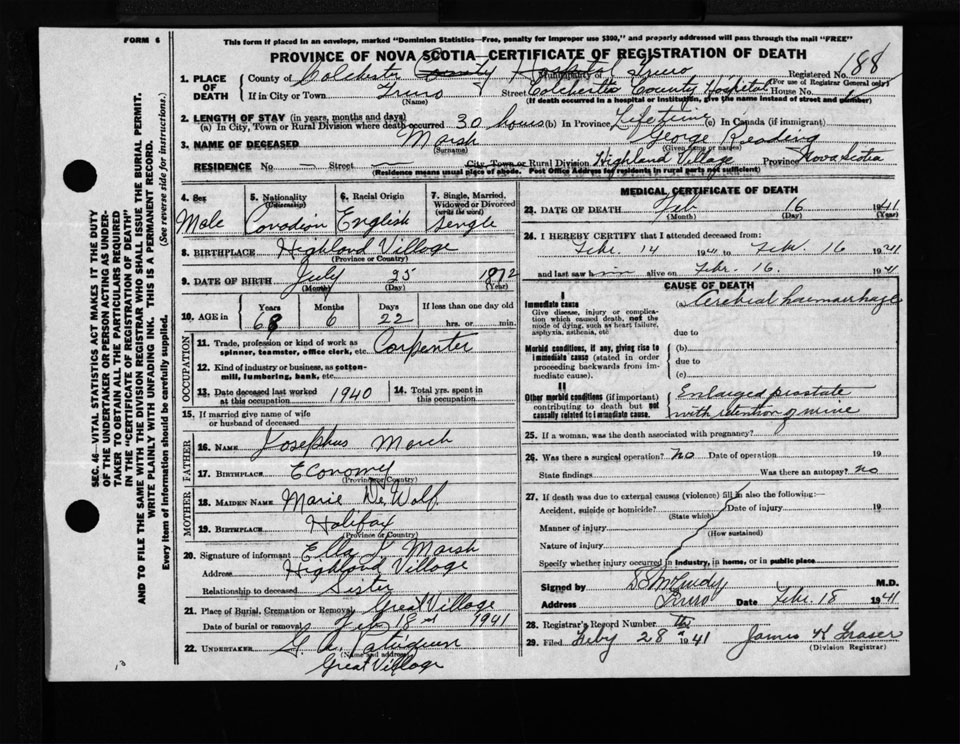 FORM 6
This form if placed in an envelope, marked "Dominion Statistics—Free, penalty for improper use $300," and properly addressed will pass through the mail "FREE"
PROVINCE OF NOVA SCOTIA—CERTIFICATE OF REGISTRATION OF DEATH
1. PLACE OF DEATH
County of Colchester County Hospital Municipality of Truro Registered No. 188
(For use of Registrar General only)
If in City or Town Truro (Name) Street Colchester County Hospital House No.
(If death occurred in a hospital or institution, give the name instead of street and number)
2. LENGTH OF STAY (in years, months and days)
(a) In City, Town or Rural Division where death occurred 30 hours (b) In Province Lifetime (c) In Canada (if immigrant)
3. NAME OF DECEASED Marsh (Surname) George Reading (Given name or names)
RESIDENCE No. — Street — City, Town or Rural Division Highland Village Province Nova Scotia
(Residence means usual place of abode. Post Office Address for residents in rural parts not sufficient)
4. Sex Male
5. Nationality (Citizenship) Canadian
6. Racial Origin English
7. Single, Married, Widowed or Divorced (write the word) Single
8. BIRTHPLACE Highland Village
(Province or Country)
9. DATE OF BIRTH July (Month) 25 (Day) 1872 (Year)
10. AGE in Years 68 Months 6 Days 22 If less than one day old hrs. or min.
OCCUPATION
11. Trade, profession or kind of work as spinner, teamster, office clerk, etc. Carpenter
12. Kind of industry or business, as cotton-mill, lumbering, bank, etc.
13. Date deceased last worked at this occupation 1940
14. Total yrs. spent in this occupation
15. If married give name of wife or husband of deceased
FATHER
16. NAME Josephus March
17. BIRTHPLACE Economy
(Province or Country)
MOTHER
18. MAIDEN NAME Marie DeWolf
19. BIRTHPLACE Halifax
(Province or Country)
20. Signature of informant Ella J. Marsh
Address Highland Village
Relationship to deceased Sister
21. Place of Burial, Cremation or Removal Great Village
Date of burial or removal Feb 18 1941
22. UNDERTAKER G. A.
(Name and address)
Great Village
MEDICAL CERTIFICATE OF DEATH
23. DATE OF DEATH Feb (Month) 16 (Day) 1941 (Year)
24. I HEREBY CERTIFY that I attended deceased from:
Febr. 14 1941 to Febr. 16 1941
and last saw him alive on Febr. 16. 1941
CAUSE OF DEATH
I
Immediate cause
Give disease, injury or complication which caused death, not the mode of dying, such as heart failure, asphyxia, asthenia, etc
(a) Cerebral haemorrhage
due to
Morbid conditions, if any, giving rise to immediate cause (stated in order proceeding backwards from immediate cause).
(b)
due to
(c)
II
Other morbid conditions (if important) contributing to death but not causally related to immediate cause.
Enlarged prostate
with retention of urine
25. If a woman, was the death associated with pregnancy?
26. Was there a surgical operation? no Date of operation 19
State findings Was there an autopsy? no
27. If death was due to external causes (violence) fill in also the following:—
Accident, suicide or homicide? (State which) Date of injury 19
Manner of injury (How sustained)
Nature of injury
Specify whether injury occurred in industry, in home, or in public place
Signed by M.D.
Address Truro Date Febr. 18 1941
28. Registrar's Record Number
29. Filed Feby 28 1941 James K Fraser
(Division Registrar)
SEC. 46—VITAL STATISTICS ACT MAKES IT THE DUTY OF THE UNDERTAKER OR PERSON ACTING AS UNDERTAKER TO OBTAIN ALL THE PARTICULARS REQUIRED IN THE "CERTIFICATE OF REGISTRATION OF DEATH" AND TO FILE THE SAME WITH THE DIVISION REGISTRAR WHO SHALL ISSUE THE BURIAL PERMIT.
WRITE PLAINLY WITH UNFADING INK. THIS IS A PERMANENT RECORD.
Every item of information should be carefully supplied. (See reverse side for instructions.)